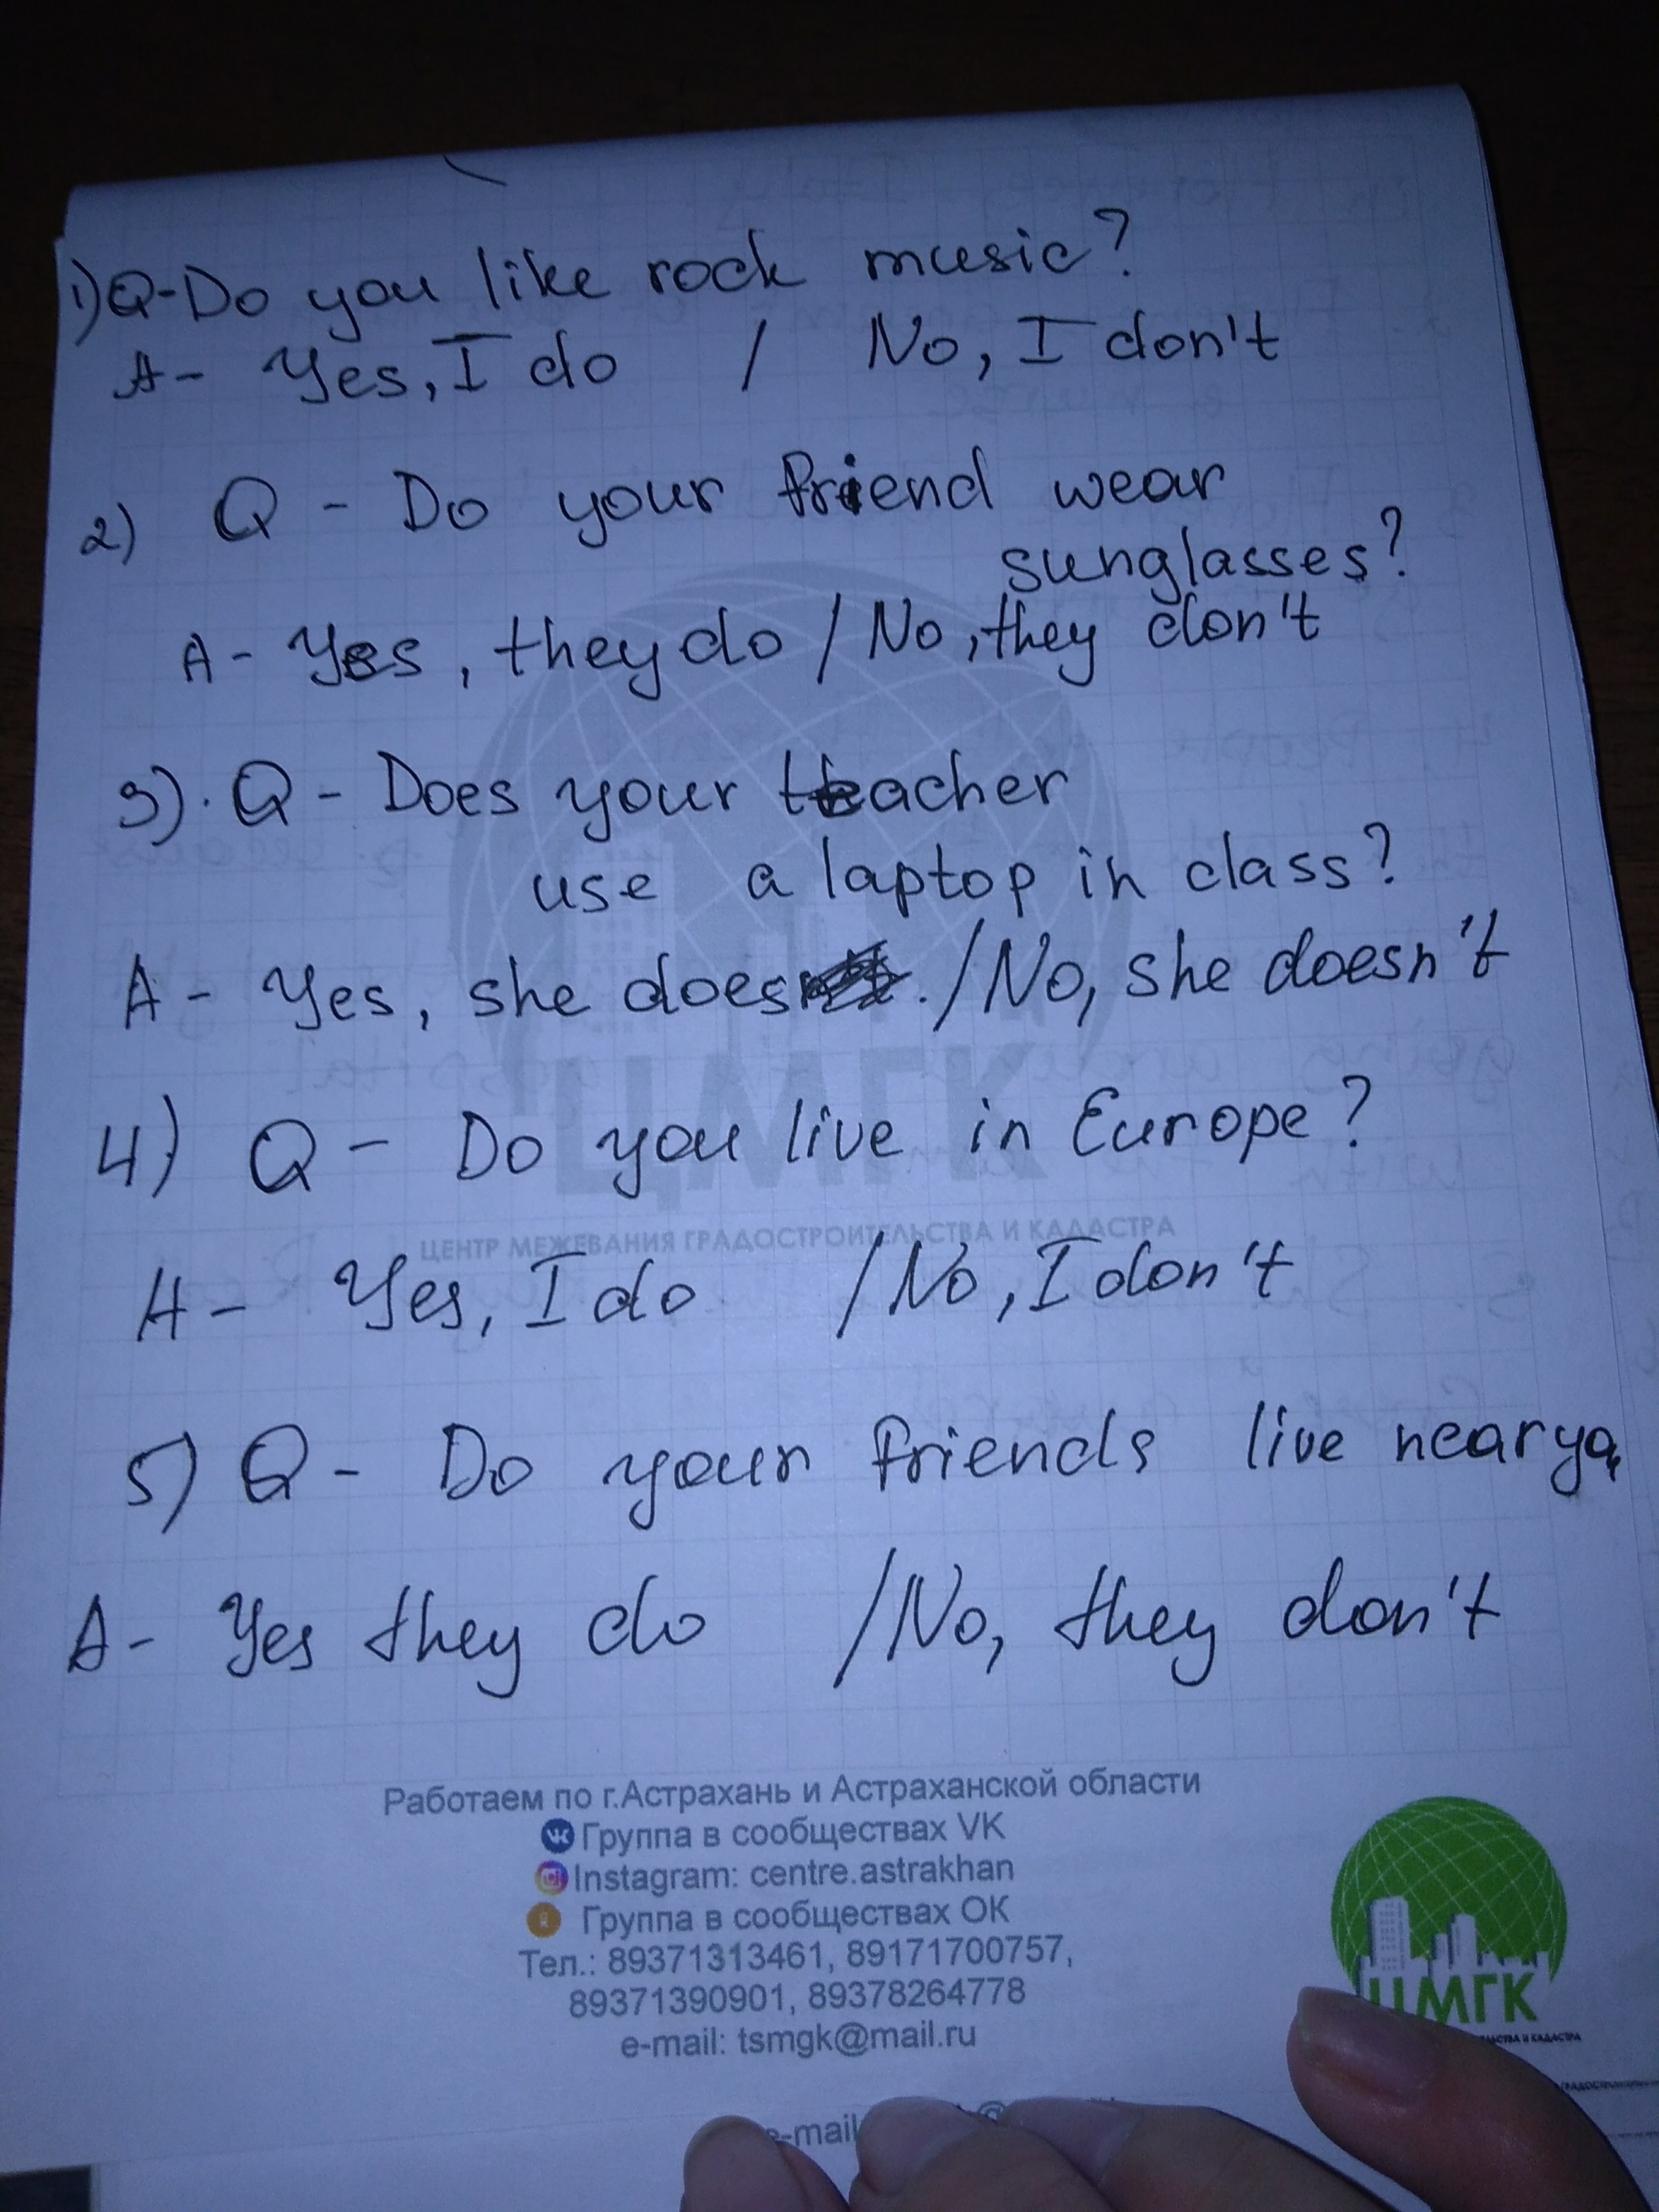 1) Q-Do you like rock music?
A- Yes, I do / No, I don't
2) Q - Do your friend wear
sunglasses?
A- Yes, they do / No, they don't
3). Q - Does your teacher
use a laptop in class?
A - Yes, she does . / No, she doesn't
ЦМГК
4) Q - Do you live in Europe?
ЦЕНТР МЕЖЕВАНИЯ ГРАДОСТРОИТЕЛЬСТВА И КАДАСТРА
A - Yes, I do / No, I don't
5) Q - Do your friends live near you
A- Yes they do / No, they don't
Работаем по г.Астрахань и Астраханской области
Группа в сообществах VK
Instagram: centre.astrakhan
Группа в сообществах ОК
Тел.: 89371313461, 89171700757,
89371390901, 89378264778
e-mail: tsmgk@mail.ru
ЦМГК
e-mail